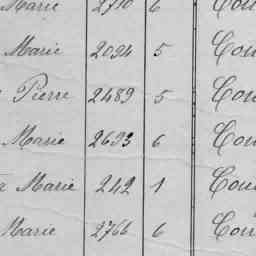 Marie 2710 6 Cou
Marie 2094 5 Cou
Pierre 2489 5 Cou
Marie 2693 6 Cou
Marie 242 1 Cou
Marie 2766 6 Cou